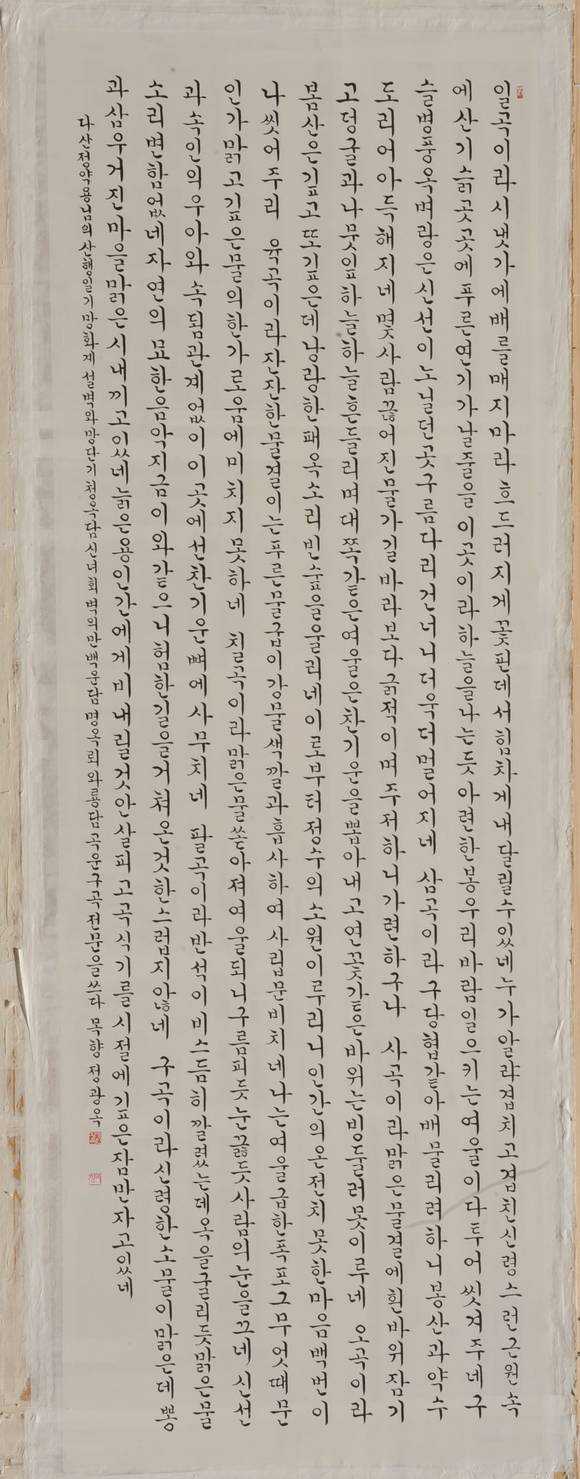 일곡이라 시냇가에 배를 매지 마라 흐드러지게 꽃 핀 데서 힘차게 내달릴 수 있네 누가 알랴 겹치고 겹친 신령스런 근원 속
에 산기슭 곳곳에 푸른 연기가 날 줄을 이곡이라 하늘을 나는 듯 아련한 봉우리 바람 일으키는 여울이 다투어 씻겨주네 구
슬병풍 옥벼랑은 신선이 노닐던 곳 구름다리 건너니 더욱더 멀어지네 삼곡이라 구당협 같아 배 물리려 하니 봉산과 약수
도리어 아득해지네 몇 사람 끊어진 물가 길 바라보다 긁적이며 주저하니 가련하구나 사곡이라 맑은 물결에 흰 바위 잠기
고 덩굴과 나뭇잎 하늘하늘 흔들리며 대쪽 같은 여울은 찬 기운을 뿜아내고 연꽃 같은 바위는 빙 둘러 못 이루네 오곡이라
봄산은 깊고 또 깊은데 낭랑한 패옥소리 빈 숲을 울리네 이로부터 정수의 소원 이루리니 인간의 온전치 못한 마음 백번이
나 씻어주리 육곡이라 잔잔한 물결이는 푸른 물굽이 강물 색깔과 흡사하여 사립문 비치네 나는 여울 급한 폭포 그 무엇 때문
인가 맑고 깊은 물의 한가로움에 미치지 못하네 칠곡이라 맑은 물 쏟아져 여울되니 구름 피듯 눈 끓듯 사람의 눈을 끄네 신선
과 속인의 우아와 속됨 관계없이 이곳에선 찬 기운 뼈에 사무치네 팔곡이라 반석이 비스듬히 깔렸는데 옥을 굴리듯 맑은 물
소리 변함없네 자연의 묘한 음악 지금 이와 같으니 험한 길을 거쳐 온 것 한스럽지 않네 구곡이라 신령한 소 물이 맑은데 뽕
과 삼 우거진 마을 맑은 시내 끼고 있네 늙은 용 인간에게 비 내릴 것 안 살피고 곡식 기를 시절에 깊은 잠만 자고 있네
다산 정약용님의 산행일기 망화계 설벽와 망단기 청옥담 신녀회 벽의만 백운담 명옥뢰 와룡담 곡운구곡 전문을 쓰다 목향 정광옥